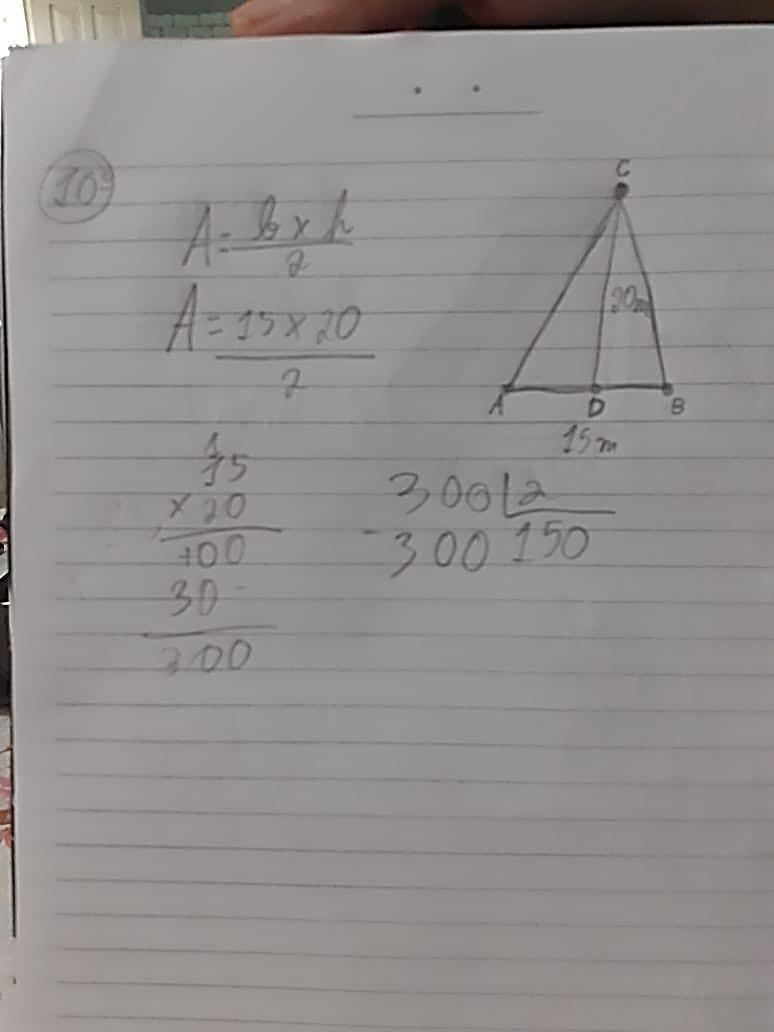 10ª
A = b x h
2
A = 15 x 20
2
C
20m
A D B
15m
1
15
x 20
100
30
300
300 2
- 300 150